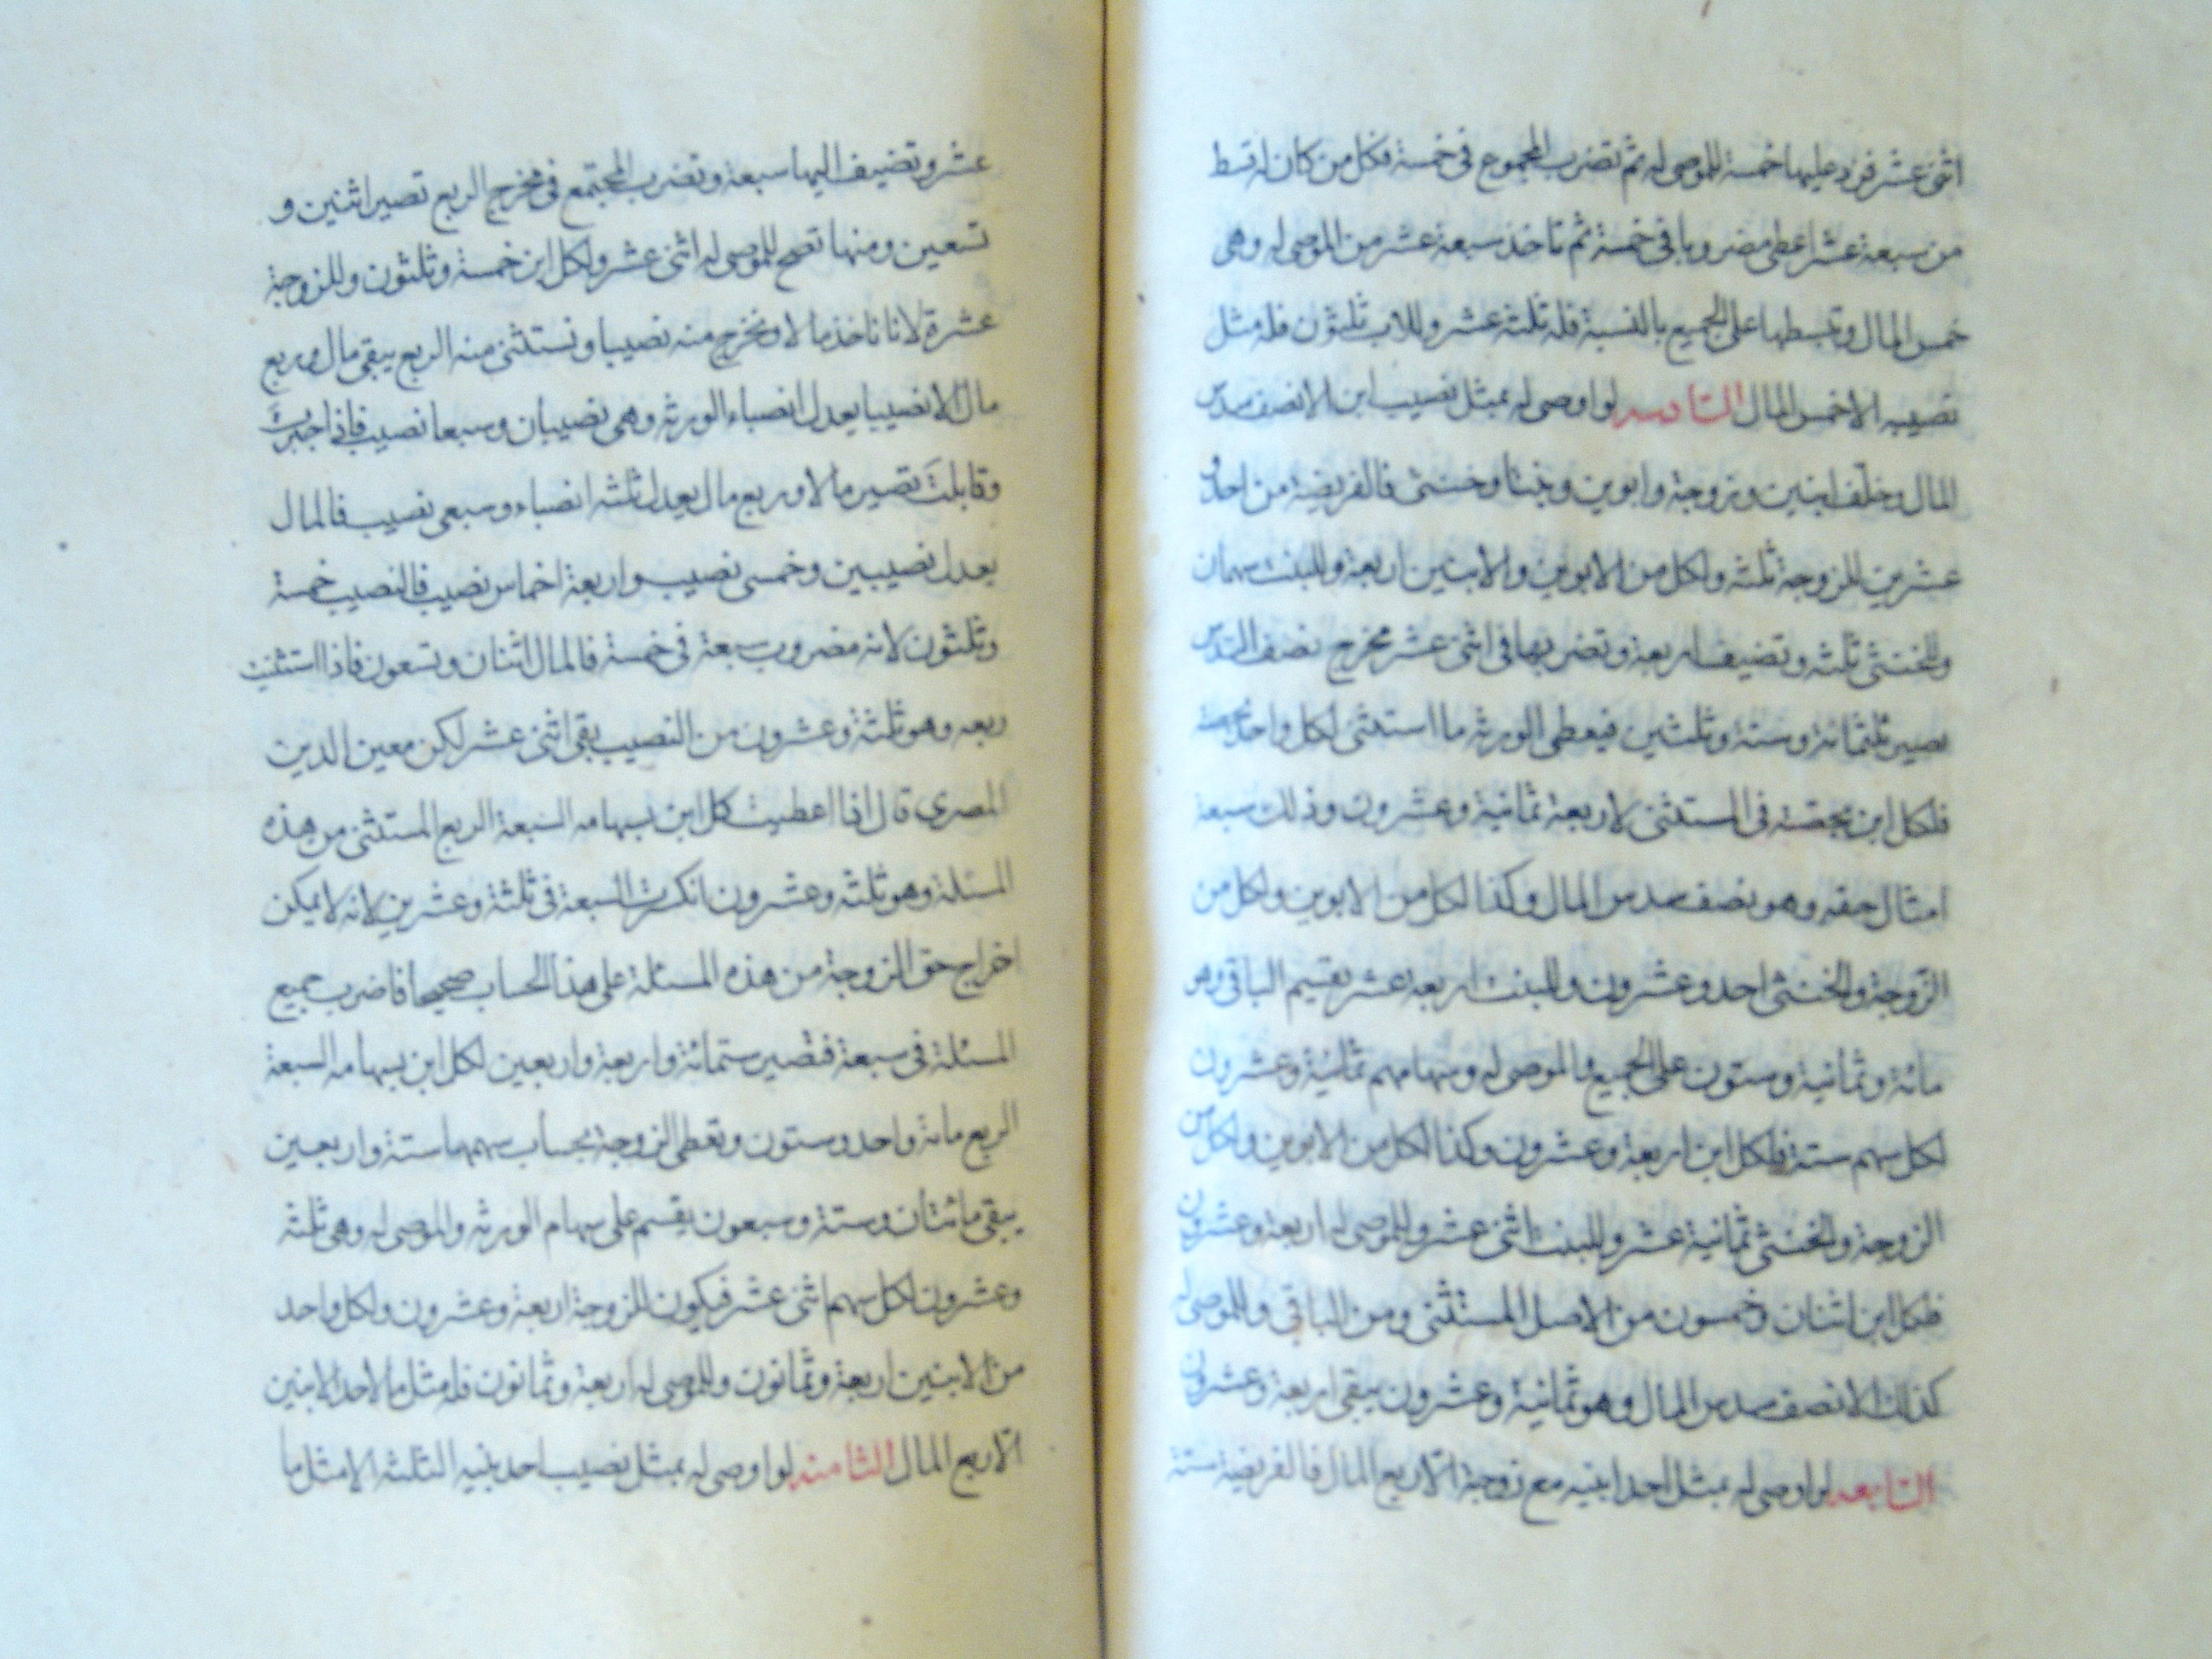 اثنى عشر فزد عليها خمسة للموصى له ثم تضرب المجموع فى خمسة فكل من كان له قسط
من سبعة عشر اعطى مضروبا فى خمسة ثم تاخذ سبعة عشر من الموصى له وهى
خمس المال وتبسطها على الجميع بالنسبة فله ثلثة عشر وللاب ثلثون فله مثل
نصيبه الا خمس المال السادسه لو اوصى له بمثل نصيب ابن الا نصف سدس
المال وخلف ابنين وزوجة وابوين وبنتا وخنثى فالفريضة من احد و
عشرين للزوجة ثلثه ولكل من الابوين والابنين اربعة وللبنت سهمان
وللخنثى ثلثه وتضيف اربعة وتضربها فى اثنى عشر مخرج نصف السدس
تصير ثلثمائة وستة وثلثين فيعطى الورثه ما استثنى لكل واحد بحصة
فلكل ابن بحصته فى المستثنى لاربعة ثمانية وعشرون وذلك سبعة
امثال حقه وهو نصف سدس المال وكذا لكل من الابوين ولكل من
الزوجة والخنثى احد وعشرون وللبنت اربعة عشر يقسم الباقى وهو
مائة وثمانية وستون على الجميع والموصى له وسهامهم ثمانية وعشرون
لكل سهم ستة فلكل ابن اربعة وعشرون وكذا لكل من الابوين ولكل من
الزوجة والخنثى ثمانية عشر وللبنت اثنى عشر وللموصى له اربعة وعشرون
فلكل ابن اثنان وخمسون من الاصل المستثنى ومن الباقى وللموصى له
كذلك الا نصف سدس المال وهو ثمانية وعشرون يبقى اربعة وعشرون
السابعه لو اوصى له بمثل احد ابنيه مع زوجة الا ربع المال فالفريضة ستة
عشر وتضيف اليها سبعة وتضرب المجتمع فى مخرج الربع تصير اثنين و
تسعين ومنها تصح للموصى له اثنى عشر ولكل ابن خمسة وثلثون وللزوجة
عشرة لانا ناخذ مالا ونخرج منه نصيبا ونستثنى منه الربع يبقى مال وربع
مال الا نصيبا يعدل انصباء الورثه وهى نصيبان وسبعا نصيب فاذا جبرت
وقابلت تصير مالا وربع مال يعدل ثلثه انصباء وسبعى نصيب فالمال
يعدل نصيبين وخمسى نصيب واربعة اخماس نصيب فالنصيب خمسة
وثلثون لانه مضروب سبعة فى خمسة فالمال اثنان وتسعون فاذا استثنيت
ربعه وهو ثلثة وعشرون من النصيب بقى اثنى عشر لكن معين الدين
المصرى قال اذا اعطيت كل ابن بسهامه السبعة الربع المستثنى من هذه
المسئلة وهو ثلثه وعشرون انكسرت السبعة فى ثلثة وعشرين لانه لا يمكن
اخراج حق الزوجة من هذه المسئلة على هذا الحساب صحيحا فاضرب جميع
المسئلة فى سبعة فتصير ستمائة واربعة واربعين لكل ابن بسهامه السبعة
الربع مائة واحد وستون وتعطى الزوجة بحساب سهمها ستة واربعين
يبقى مائتان وستة وسبعون يقسم على سهام الورثه والموصى له وهى ثلثه
وعشرون لكل سهم اثنى عشر فيكون للزوجة اربعة وعشرون ولكل واحد
من الابنين اربعة وثمانون وللموصى له اربعة وثمانون فله مثل ما لاحد الابنين
الا ربع المال الثامنه لو اوصى له بمثل نصيب احد بنيه الثلثه الا مثل ما